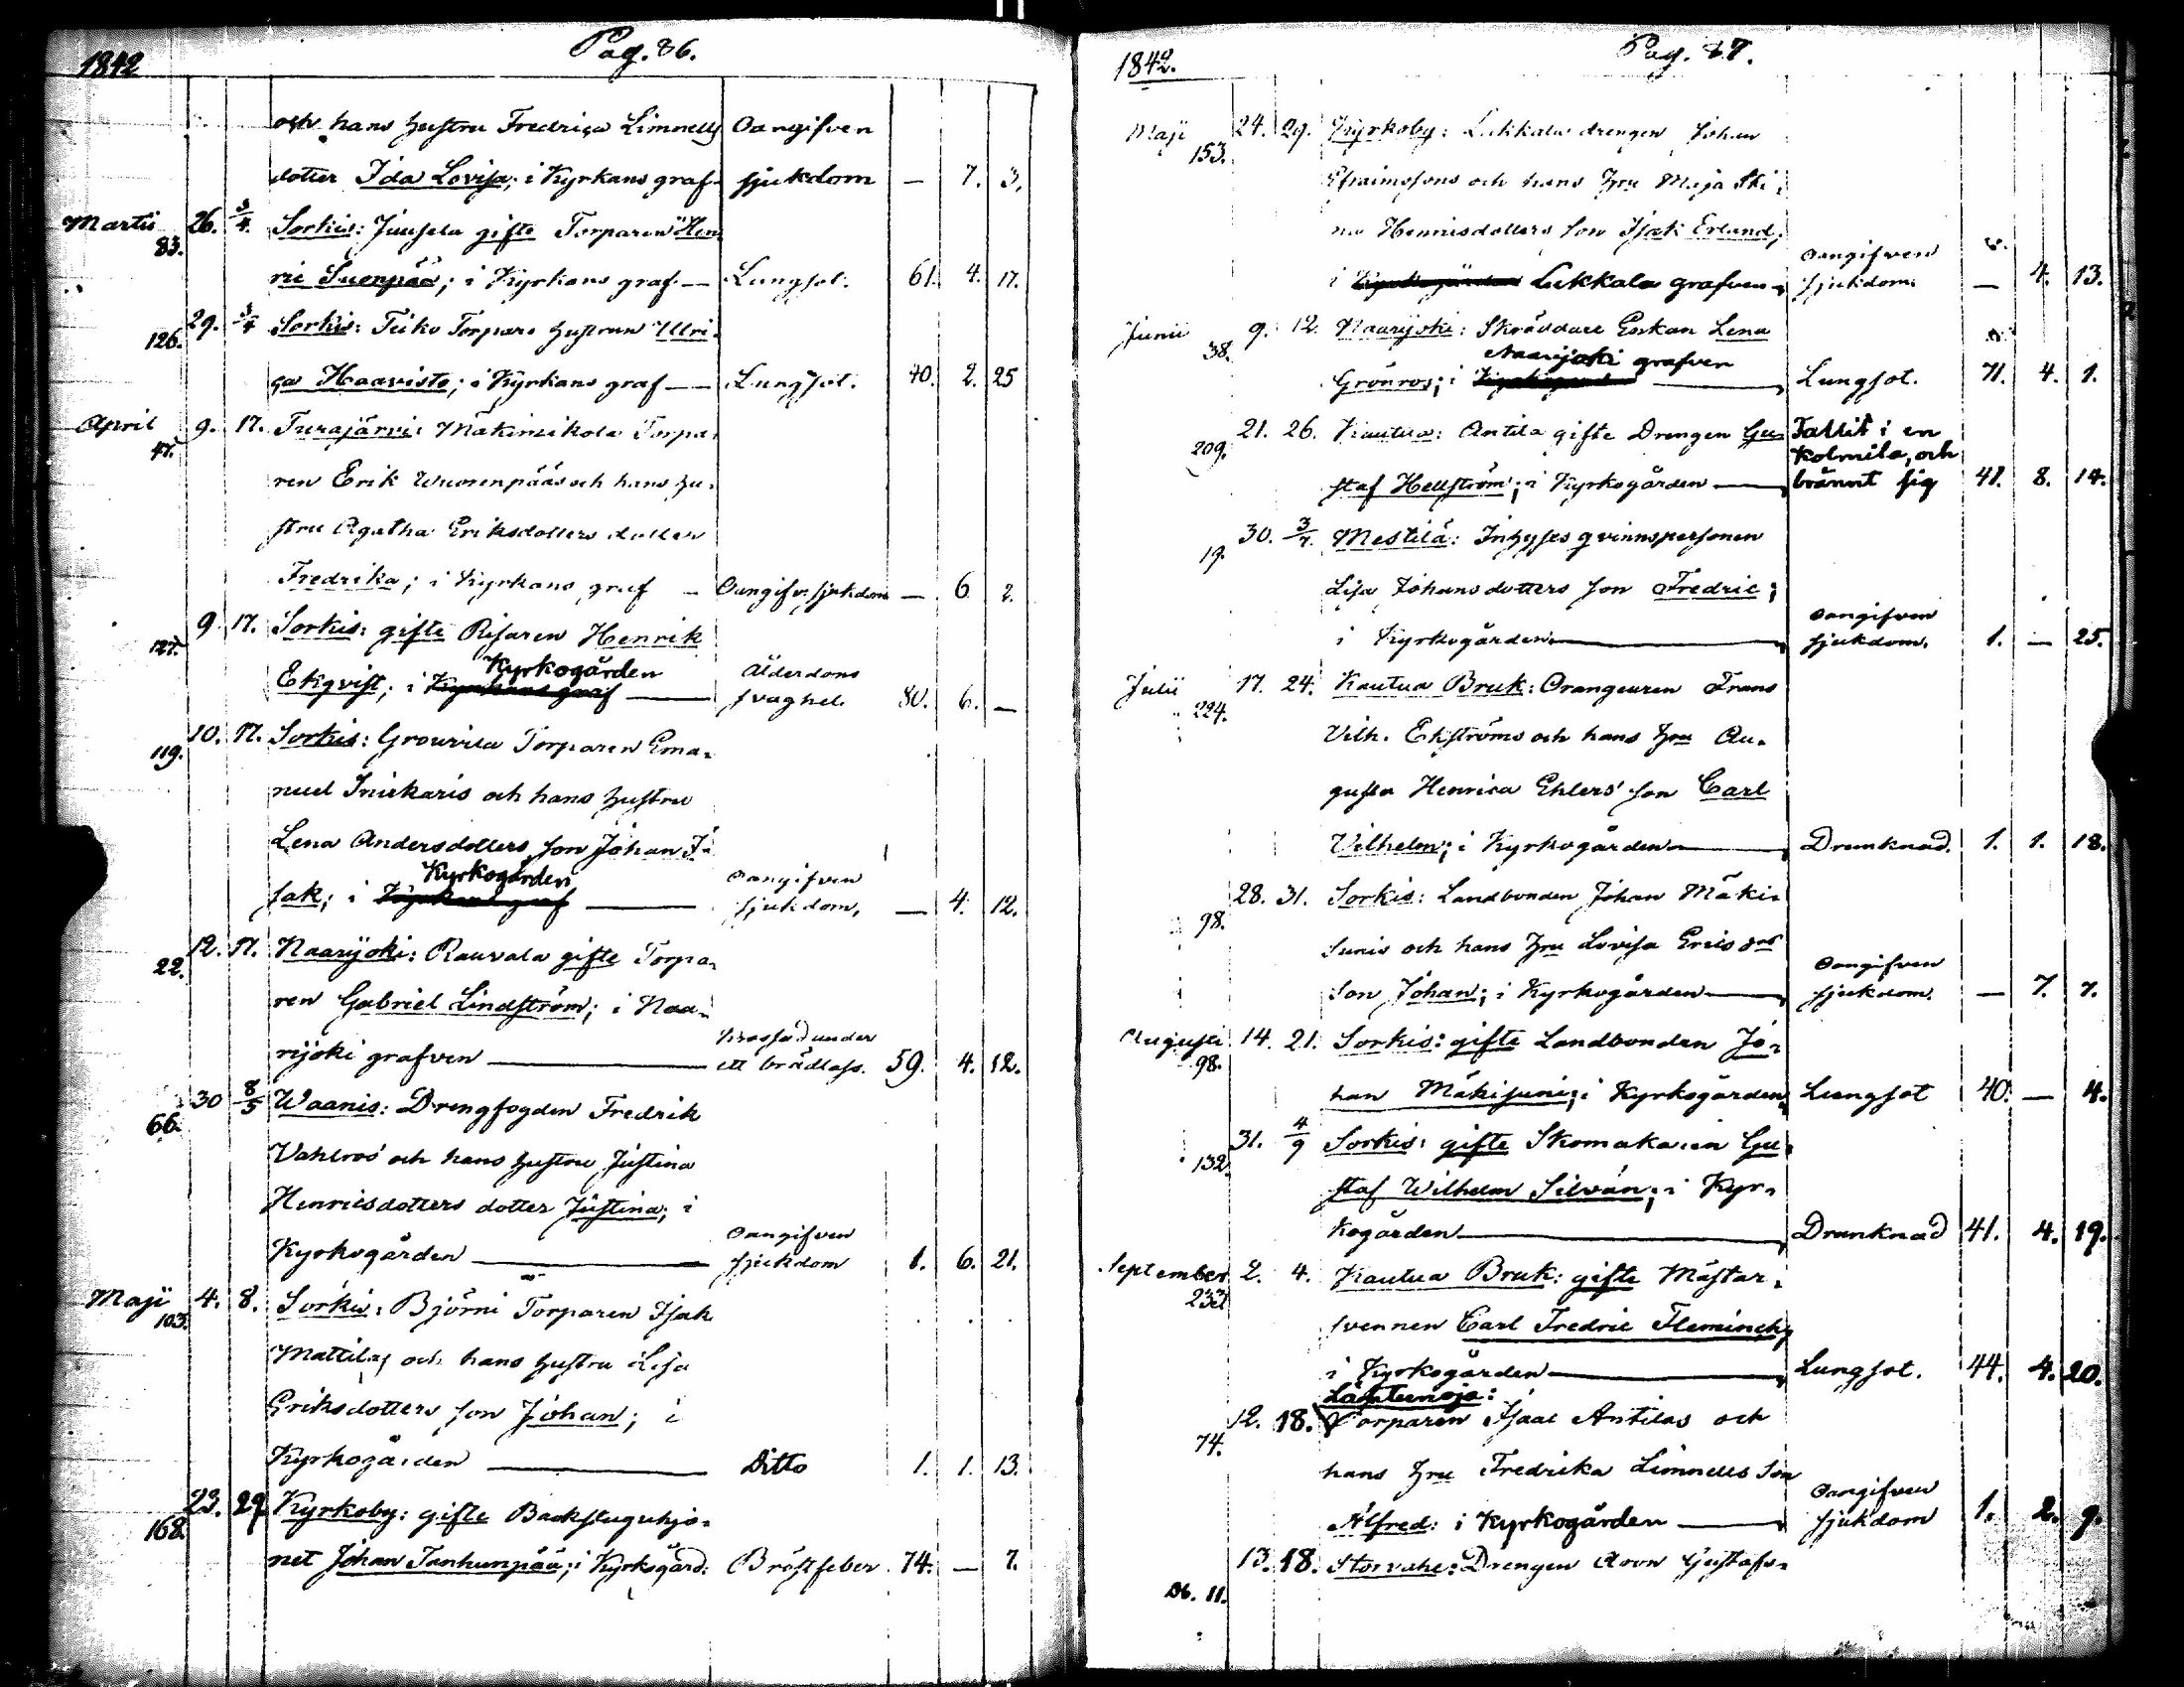 1842
Pag. 86.
och hans hustru Fredrica Limnells Oangifven
dotter Ida Lovisa; i Kyrkans graf - sjukdom — 7. 3.
Martii 83. 26. 3/4. Sorkis: Juusela gifte Torparen Hen
ric Suenpää; i Kyrkans graf — Lungsot. 61. 4. 17.
126. 29. 3/4 Sorkis: Teiko Torpare hustrun Ulri
ca Haavisto; i Kyrkans graf — Lungsot. 40. 2. 25
April 47. 9. 17. Turajärvi: Mäkimikola Torpa
ren Erik Wuorenpääs och hans hu
stru Agatha Eriksdotters dotter
Fredrika; i Kyrkans graf - Oangifv. sjukdom — 6 2.
127. 9. 17. Sorkis: gifte Risaren Henrik
Kyrkogården Ålderdoms
Ekqvist; i Kyrkans graf — svaghet. 80. 6. —
119. 10. 17. Sorkis: Torparen Ema
nuel Inirkaris och hans hustru
Lena Andersdotters son Johan I
Kyrkogården Oangifven
sak; i Kyrkans graf — sjukdom. — 4. 12.
22. 12. 17. Naarijoki: Rauvala gifte Torpa
ren Gabriel Lindström; i Naa
Krossad under
rijoki grafven — ett brädlass. 59. 4. 12.
66. 30 8/5 Waanis: Drengfogden Fredrik
Vahlros' och hans hustru Justina
Henricsdotters dotter Justina; i
Oangifven
Kyrkogården — sjukdom 1. 6. 21.
Maji 103. 4. 8. Sorkis: Björni Torparen Isak
Mattilas och hans hustru Lisa
Eriksdotters son Johan; i
Kyrkogården — Ditto 1. 1. 13.
168. 23. 29 Kyrkoby: gifte Backstuguhjo
net Johan Tanhunpää; i Kyrkogård: Bröstfeber 74. — 7.
1842.
Pag. 87.
Maji 153. 24. 29. Kyrkoby: Lukkala drengen Johan
Efraimssons och hans hru Maja Sti
na Henricsdotters son Isak Erland;
Oangifven
i Kyrkogården Lukkala grafven — sjukdom. — 4. 13.
Junii 38. 9. 12. Naarijoki: Skräddare Enkan Lena
Naarijoki grafven
Grönros; i — Lungsot. 71. 4. 1.
209. 21. 26. Kautua: Antila gifte Drengen Gu Fallit i en
Kolmila, och
staf Hellström; i Kyrkogården — brännt sig 41. 8. 14.
19. 30. 3/7. Mestilä: Inhyses qvinnspersonen
Lisa Johansdotters son Fredric;
Oangifven
i Kyrkogården — sjukdom. 1. — 25.
Julii 224. 17. 24. Kautua Bruk: Orangeuren Frans
Vilh. Ekströms och hans hru Au
gusta Henrica Ehlers' son Carl
Vilhelm; i Kyrkogården — Drunknad. 1. 1. 18.
98. 28. 31. Sorkis: Landbonden Johan Mäki
Junis och hans hru Lovisa Erics drs
Oangifven
Son Johan; i Kyrkogården — sjukdom. — 7. 7.
Augusti 98. 14. 21. Sorkis: gifte Landbonden Jo
han Mäkijuni; i Kyrkogården Lungsot 40. — 4.
132 31. 4/9 Sorkis: gifte Skomakaren Gu
staf Wilhelm Silván; i Kyr
kogården — Drunknad 41. 4. 19.
September 233 2. 4. Kautua Bruk: gifte Mästar
svennen Carl Fredric Fleminck;
i Kyrkogården — Lungsot. 44. 4. 20.
74. 12. 18. Torparen Isaac Antilas och
hans hru Fredrika Limnells Son
Oangifven
Alfred: i Kyrkogården — sjukdom 1. 2. 9.
Db. 11. 13. 18. Storvahe: Drengen Aron Gustafs